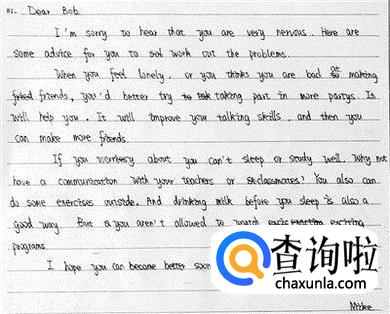 Dear Bob
I'm sorry to hear that you are very nervous. Here are
some advice for you to sol work out the problems.
When you feel lonely, or you thinks you are bad at making
fried friends, you'd better try to tak taking part in more partys. It
will help you. It will improve your talking skills, and then you
can make more friends.
If you worrisey about you can't sleep or study well. Why not
have a communication with your teachers or st classmates? You also can
do some exercises outside. And drinking milk before you sleep is also a
good way. But you aren't allowed to watch exciting
programs.
I hope you can become better soon
Mike
查询啦
chaxunla.com